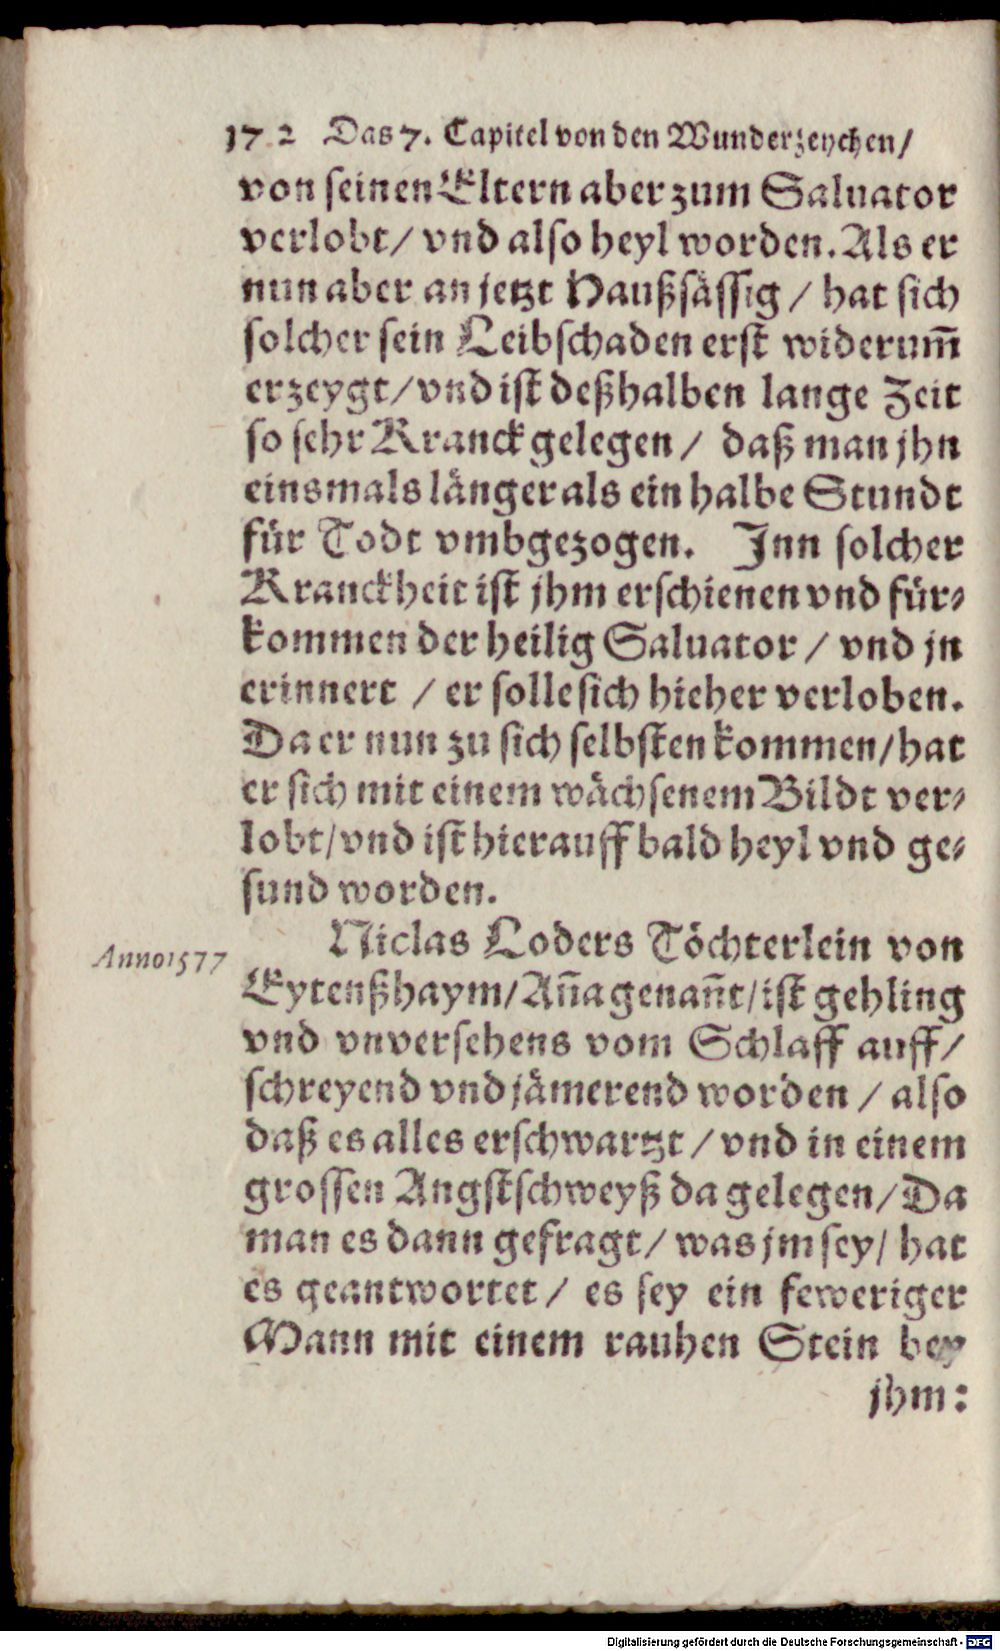 172 Das 7. Capitel von den Wunderzeychen/
von seinen Eltern aber zum Saluator
verlobt/ vnd also heyl worden. Als er
nun aber an jetzt Haußsässig / hat sich
solcher sein Leibschaden erst widerum̄
erzeygt/ vnd ist deßhalben lange Zeit
so sehr Kranck gelegen / daß man jhn
einsmals länger als ein halbe Stundt
für Todt vmbgezogen. Inn solcher
Kranckheit ist jhm erschienen vnd für⸗
kommen der heilig Saluator / vnd jn
erinnert / er solle sich hieher verloben.
Da er nun zu sich selbsten kommen/ hat
er sich mit einem wächsenem Bildt ver⸗
lobt/ vnd ist hierauff bald heyl vnd ge⸗
sund worden.
Anno 1577
Niclas Loders Töchterlein von
Eytenßhaym/ An̄a genan̄t/ ist gehling
vnd vnversehens vom Schlaff auff/
schreyend vnd jämerend worden / also
daß es alles erschwartzt / vnd in einem
grossen Angstschweyß da gelegen/ Da
man es dann gefragt/ was jm sey/ hat
es geantwortet / es sey ein feweriger
Mann mit einem rauhen Stein bey
jhm:
Digitalisierung gefördert durch die Deutsche Forschungsgemeinschaft - DFG